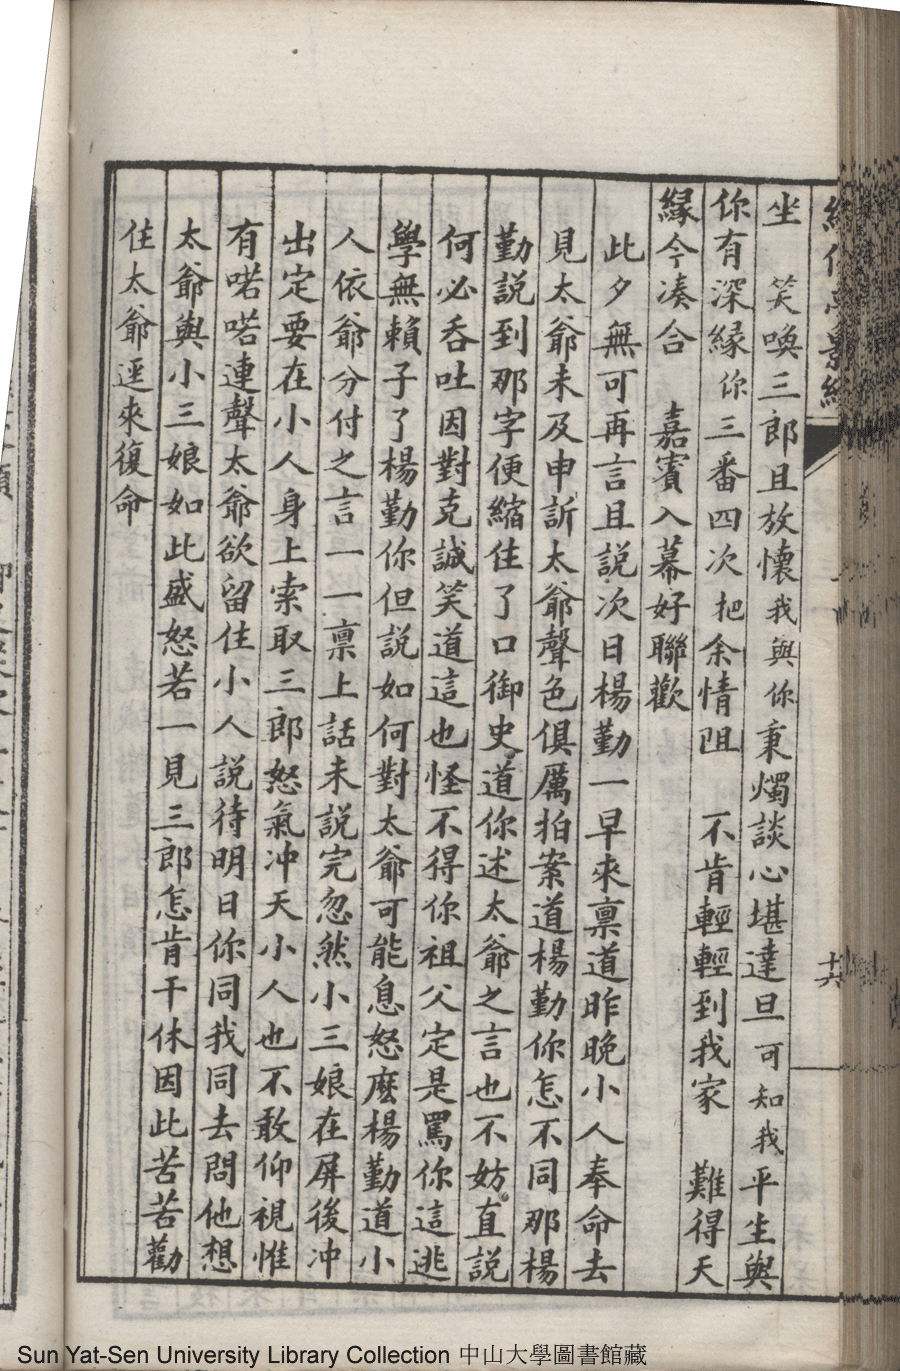 坐　笑喚三郎且放懷我與你秉燭談心堪達旦可知我平生與
你有深緣你三番四次把余情阻　不肯輕輕到我家　難得天
緣今凑合　嘉賓入幕好聯歡
此夕無可再言且説次日楊勤一早來稟道昨晚小人奉命去
見太爺未及申訴太爺聲色俱厲拍案道楊勤你怎不同那楊
勤説到那字便縮住了口御史道你述太爺之言也不妨直説
何必吞吐因對克誠笑道這也怪不得你祖父定是罵你這逃
學無賴子了楊勤你但説如何對太爺可能息怒麽楊勤道小
人依爺分付之言一一稟上話未説完忽然小三娘在屏後冲
出定要在小人身上索取三郎怒氣冲天小人也不敢仰視惟
有喏喏連聲太爺欲留住小人説待明日你同我同去問他想
太爺與小三娘如此盛怒若一見三郎怎肯干休因此苦苦勸
住太爺逕來復命
十六
Sun Yat-Sen University Library Collection 中山大學圖書館藏